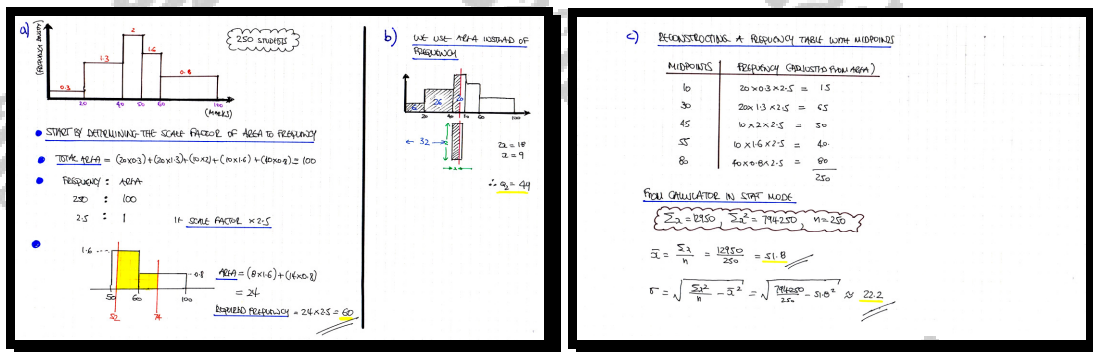 a)
250 STUDENTS
(FREQUENCY DENSITY)
2
1.6
1.3
0.8
0.3
20 40 50 60 100
(MARKS)
• START BY DETERMINING THE SCALE FACTOR OF AREA TO FREQUENCY
• TOTAL AREA = (20×0.3)+(20×1.3)+(10×2)+(10×1.6)+(40×0.8) = 100
• FREQUENCY : AREA
250 : 100
2.5 : 1 IE SCALE FACTOR ×2.5
1.6
0.8
50 60 100
52 74
AREA = (8×1.6)+(14×0.8)
= 24
REQUIRED FREQUENCY = 24×2.5 = 60
b) WE USE AREA INSTEAD OF
FREQUENCY
6 26 20
20 40 50 60 100
← 32 →
2
← x →
2x = 18
x = 9
∴ Q₂ = 49
c) RECONSTRUCTING A FREQUENCY TABLE WITH MIDPOINTS
MIDPOINTS FREQUENCY (ADJUSTED FROM AREA)
10 20×0.3×2.5 = 15
30 20×1.3×2.5 = 65
45 10×2×2.5 = 50
55 10×1.6×2.5 = 40
80 40×0.8×2.5 = 80
250
FROM CALCULATOR IN STAT MODE
Σx = 12950, Σx² = 794250, n = 250
x̄ = Σx/n = 12950/250 = 51.8
σ = √(Σx²/n - x̄²) = √(794250/250 - 51.8²) ≈ 22.2